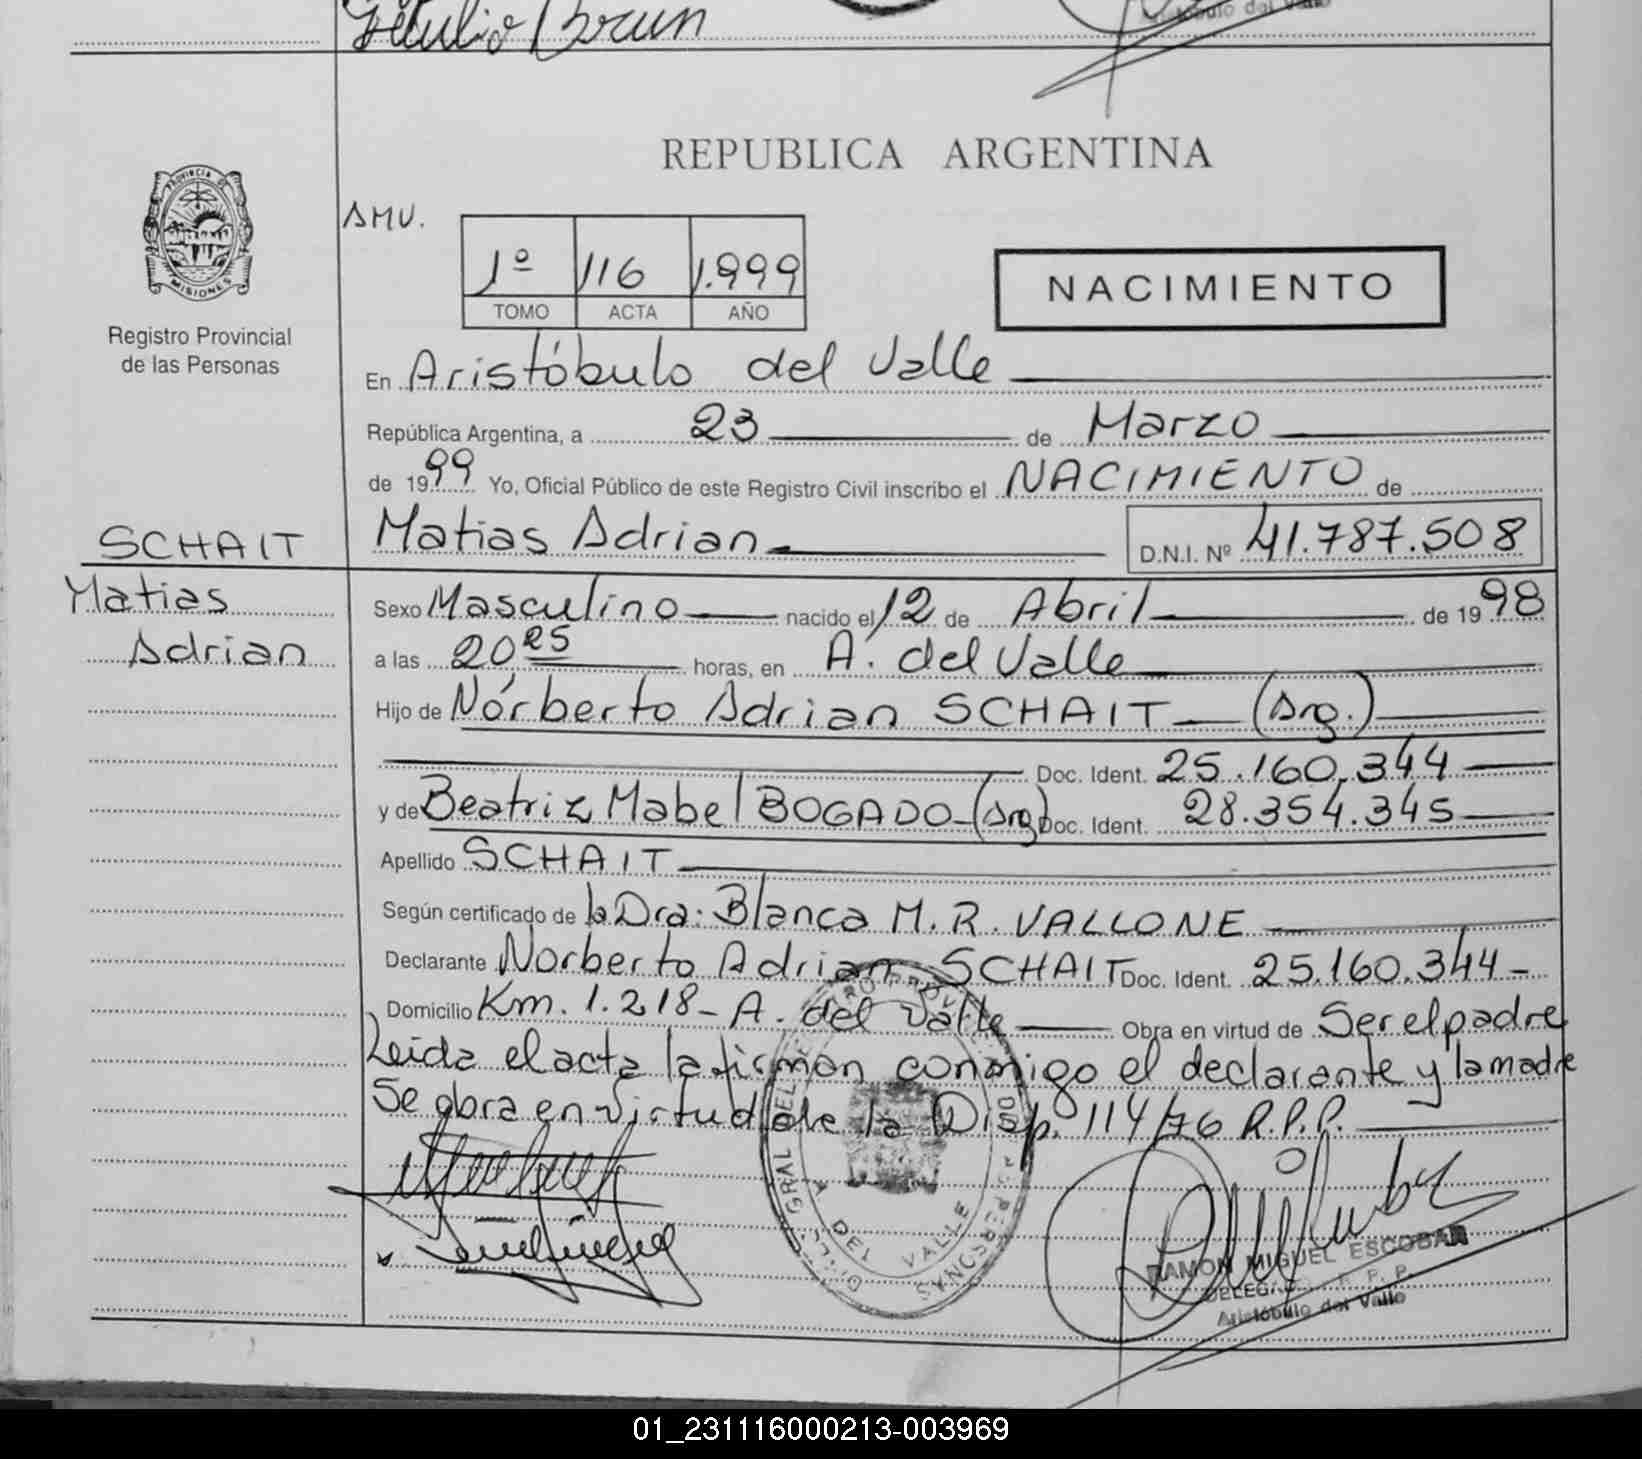 Brun
REPUBLICA ARGENTINA
PROVINCIA DE
MISIONES
Registro Provincial
de las Personas
SMV.
1º 116 1.999
TOMO ACTA AÑO
NACIMIENTO
En Aristóbulo del Valle
República Argentina, a 23 de Marzo
de 1999 Yo, Oficial Público de este Registro Civil inscribo el NACIMIENTO de
SCHAIT
Matias Adrian D.N.I. Nº 41.787.508
Matias
Adrian
Sexo Masculino nacido el 12 de Abril de 1998
a las 20 25 horas, en A. del Valle
Hijo de Nórberto Adrian SCHAIT (Arg.)
Doc. Ident. 25.160.344
y de Beatriz Mabel BOGADO (Arg) Doc. Ident. 28.354.345
Apellido SCHAIT
Según certificado de la Dra: Blanca M. R. VALLONE
Declarante Norberto Adrian SCHAIT Doc. Ident. 25.160.344-
Domicilio Km. 1.218- A. del Valle Obra en virtud de Ser el padre
Leida el acta la firman conmigo el declarante y la madre
Se obra en virtud de la Disp. 114/76 R.P.P.
DEL VALLE
PERSONAS
RAMON MIGUEL ESCOBAR
DELEGADO R. P. P.
Aristóbulo del Valle
01_231116000213-003969